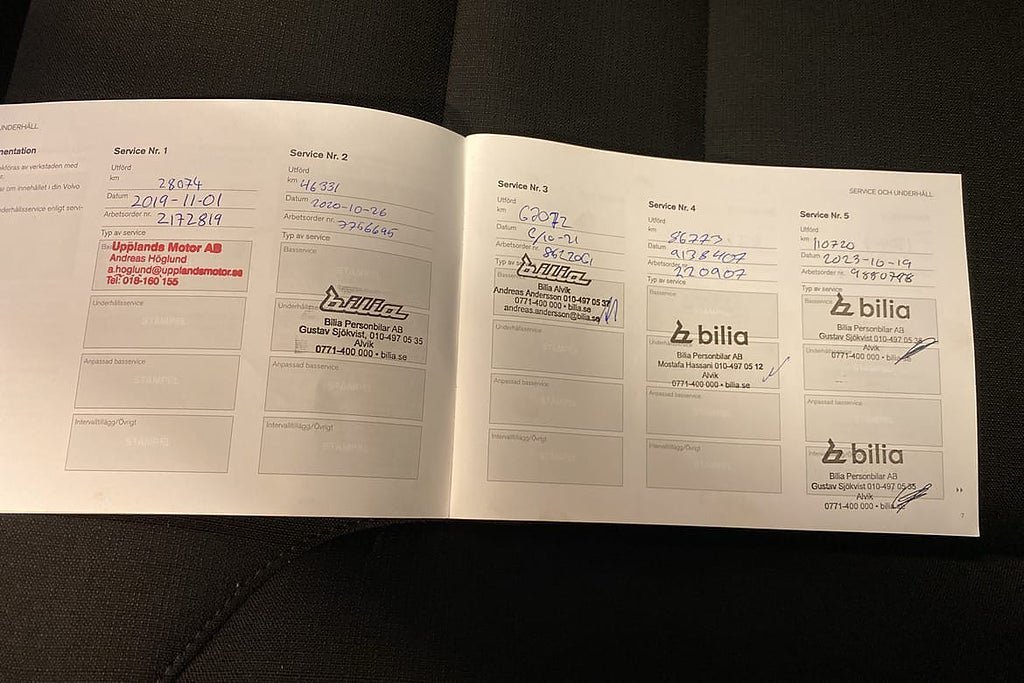 UNDERHÅLL
mentation
Service Nr. 1
Utförd
km 28074
Datum 2019-11-01
Arbetsorder nr. 2172819
Typ av service
Upplands Motor AB
Andreas Höglund
a.hoglund@upplandsmotor.se
Tel: 018-160 155
Underhållsservice
STÄMPEL
Anpassad basservice
STÄMPEL
Intervalltillägg/Övrigt
STÄMPEL
Service Nr. 2
Utförd
km 46331
Datum 2020-10-26
Arbetsorder nr. 7766695
Typ av service
Basservice
bilia
Bilia Personbilar AB
Gustav Sjökvist, 010-497 05 35
Alvik
0771-400 000 • bilia.se
Anpassad basservice
STÄMPEL
Intervalltillägg/Övrigt
STÄMPEL
Service Nr. 3
Utförd
km 62072
Datum
Arbetsorder nr.
bilia
Bilia Alvik
Andreas Andersson 010-497 05
0771-400 000 • bilia.se
andreas.andersson@bilia.se
Underhållsservice
Anpassad basservice
Intervalltillägg/Övrigt
SERVICE OCH UNDERHÅLL
Service Nr. 4
Utförd
km 86773
Datum 9138407
Arbetsorder nr. 220907
Typ av service
Basservice
bilia
Bilia Personbilar AB
Mostafa Hassani 010-497 05 12
Alvik
0771-400 000 • bilia.se
Anpassad basservice
Intervalltillägg/Övrigt
Service Nr. 5
Utförd
km 110720
Datum 2023-10-19
Arbetsorder nr. 9880798
Typ av service
bilia
Bilia Personbilar AB
Gustav Sjökvist 010-497 05 35
Alvik
0771-400 000 • bilia.se
Anpassad basservice
bilia
Bilia Personbilar AB
Gustav Sjökvist 010-497 05 35
Alvik
0771-400 000 • bilia.se
7